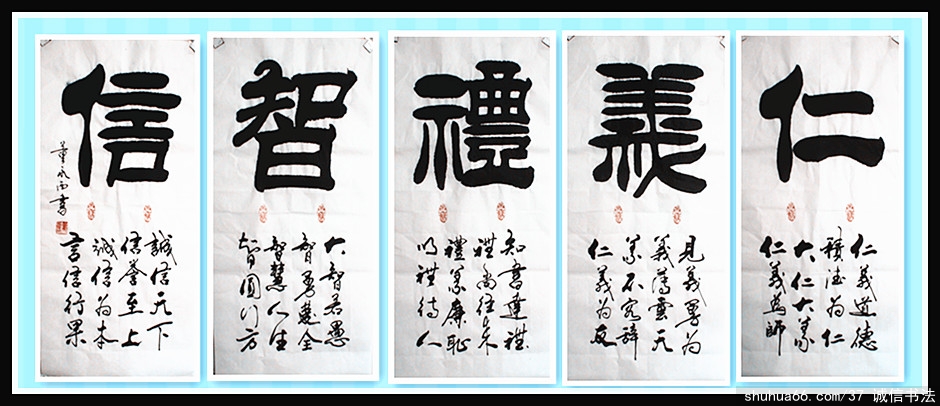 仁
仁義道德
積德为仁
大仁大義
仁義為師
義
見義勇为
義薄雲天
義不容辞
仁義为友
禮
知書達禮
禮尚往来
禮義廉恥
以禮待人
智
大智若愚
智勇雙全
智慧人生
智圓行方
信
誠信天下
信譽至上
誠信为本
言信行果
shuhua66.com/37 诚信书法